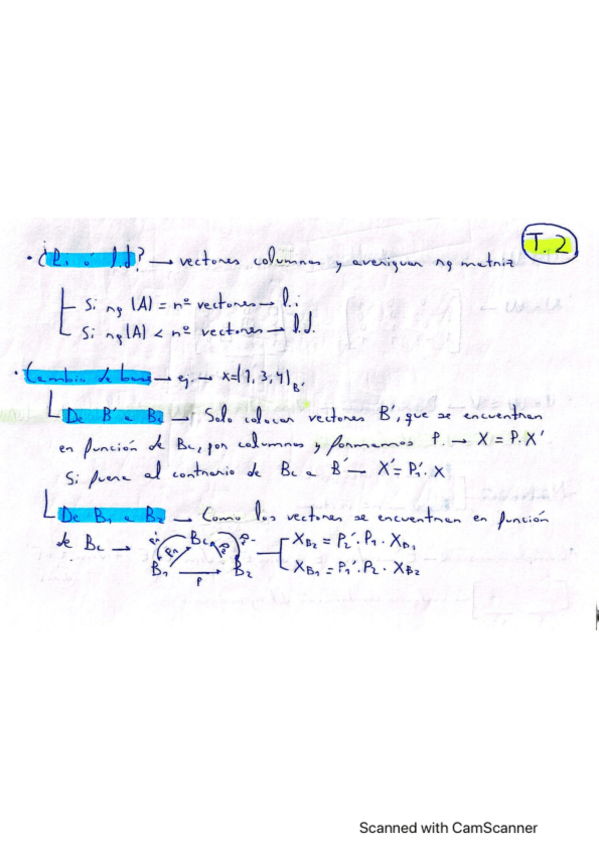 T. 2
• ¿l.i o l.d? → vectores columnas y averiguar rg matriz
Si rg (A) = nº vectores → l.i
Si rg (A) < nº vectores → l.d.
• Cambio de base → ej. → x=(1,3,4)B'
De B' a Bc → Solo colocar vectores B', que se encuentran
en función de Bc, por columnas y formamos P. → X = P. X'
Si fuera al contrario de Bc a B' → X' = P1'. X
De B1 a B2 → Como los vectores se encuentran en función
de Bc → Bc XB2 = P2'. P1. XB1
B1 P B2 XB1 = P1'. P2. XB2
Scanned with CamScanner